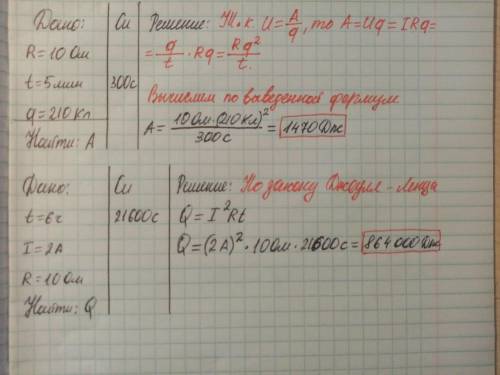 Дано:
R=10 Ом
t=5 мин
q=210 Кл
Найти: A
Си
300с
Решение: Т.к. U=A/q, то A=Uq=IRq=
=q/t·Rq=Rq²/t.
Вычислим по выведенной формуле
A=10 Ом·(210 Кл)²/300с=1470 Дж
Дано:
t=6ч
I=2А
R=10 Ом
Найти: Q
Си
21600с
Решение: По закону Джоуля-Ленца
Q=I²Rt
Q=(2А)²·10 Ом·21600с=864000 Дж